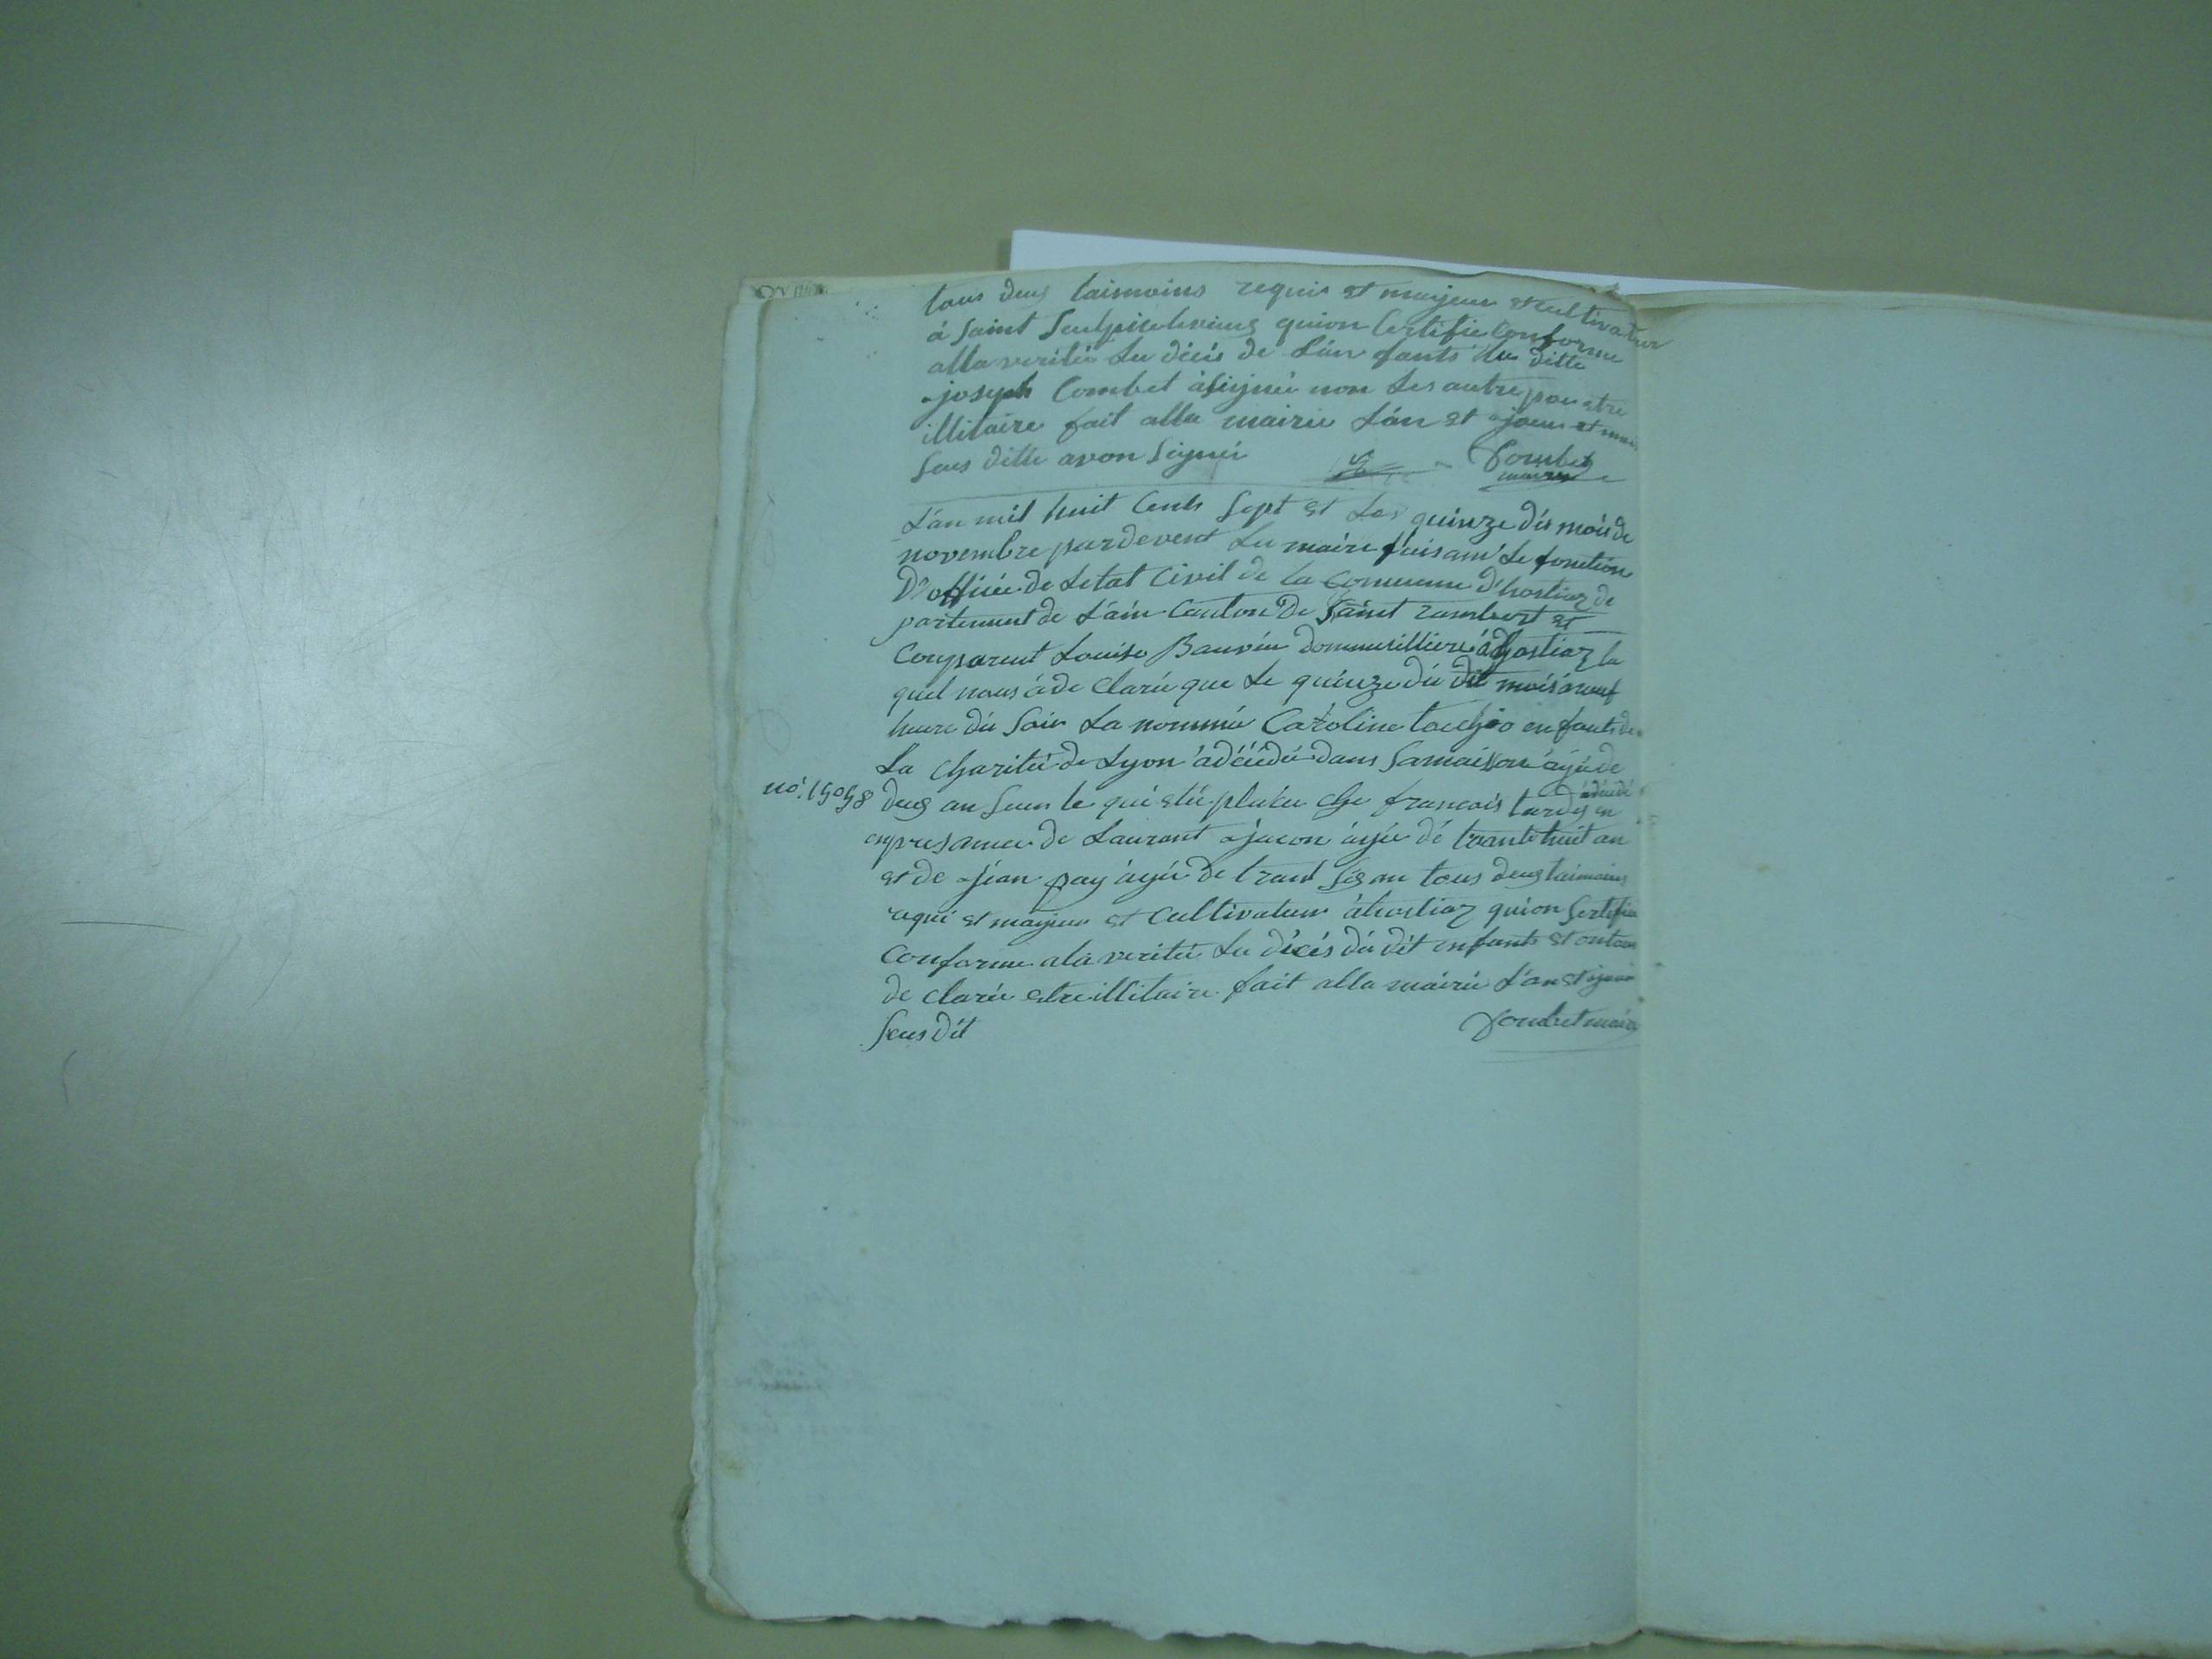 tous deux taimoins requis et majeur et cultivateur
à Saint Seulpisele vieux quion Certifie Conforme
alla verité Lu décis de L'an fants du ditte
joseph Combet à signé non Les autre pour etre
illitaire fait alla mairie L'an et jour et mois
Sus ditte avon Signé Combet
maire
L'an mil huit Cents Sept et Les quinze dis mois de
novembre pardevent Lu maire faisant Le fonction
D'officié de Letat Civil de la Commune d'hostiaz de
partement de L'ain Canton de Saint rambert et
Conparent Louise Bauvin dommusilliere à hostiaz la
quel nous à de Clarée que Le quinze du dit mois à neuf
heure du Soir La nommée Caroline en fants de
La Charité de Lyon à décédé dans Samaison àgé de
no. 15058 deux an Seur le qui été plasu che francois tardy en
décédé
enpresance de Laurant jacon àgée dé trante huit an
et de jian pay àgée de trant Six an tous deux taimoins
requi et majeur et Cultivateur àhostiaz quion Sertifie
Conforme ala verité Lu décés du dit enfants et ontous
de Clarée etre illitaire fait alla mairie L'an et jour
Sus dit Combet maire